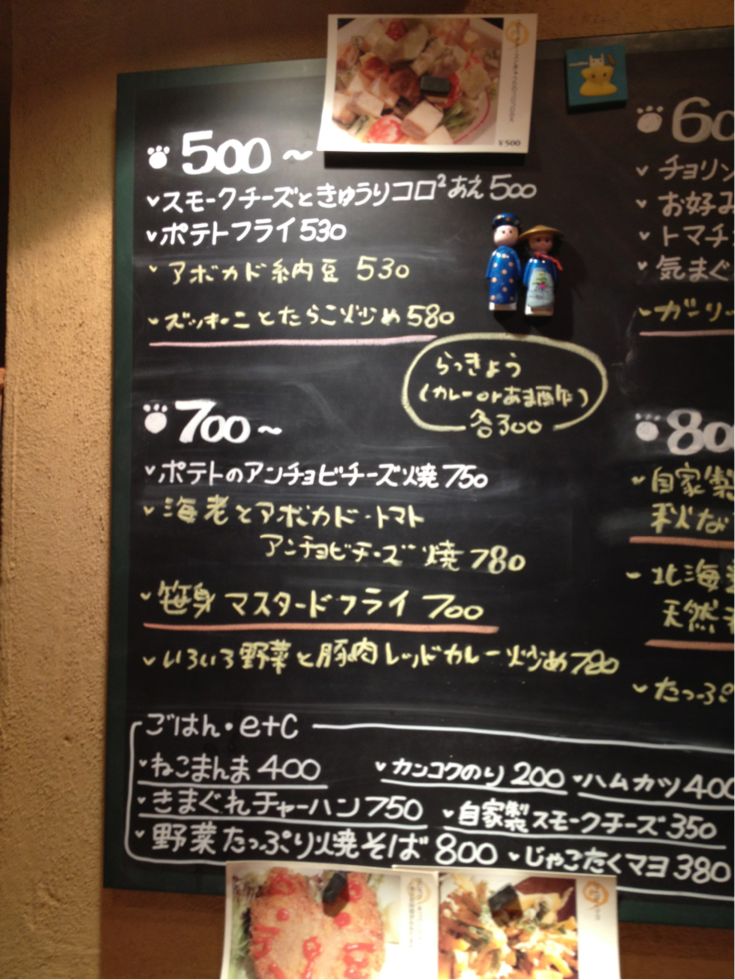 500~
スモークチーズときゅうりコロ²あえ 500
ポテトフライ 530
アボカド納豆 530
ズッキーニとたらこ炒め 580
らっきょう
(カレー or あま酢)
各300
700~
ポテトのアンチョビチーズ焼 750
海老とアボカド・トマト
アンチョビチーズ焼 780
笹身マスタードフライ 700
いろいろ野菜と豚肉レッドカレー炒め 780
ごはん・etc
ねこまんま 400
カンコクのり 200
ハムカツ 400
きまぐれチャーハン 750
自家製スモークチーズ 350
野菜たっぷり焼そば 800
じゃこたくマヨ 380
¥500
60
チョリソ
お好み
トマチ
気まぐ
ガーリー
80
自家製
秋な
北海
天然
たっぷ